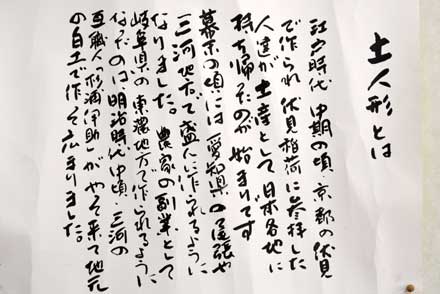 土人形とは
江戸時代 中期の頃、京都の伏見
で作られ伏見稲荷に参拝した
人達が土産として日本各地に
持ち帰ったのが始まりです
幕末の頃には愛知県の尾張や
三河地方で盛んに作られるように
なりました。農家の副業として
岐阜県の東農地方で作られるように
なったのは、明治時代中頃 三河の
瓦職人「杉浦伊助」がやって来て地元
の白土で作って広まりました。